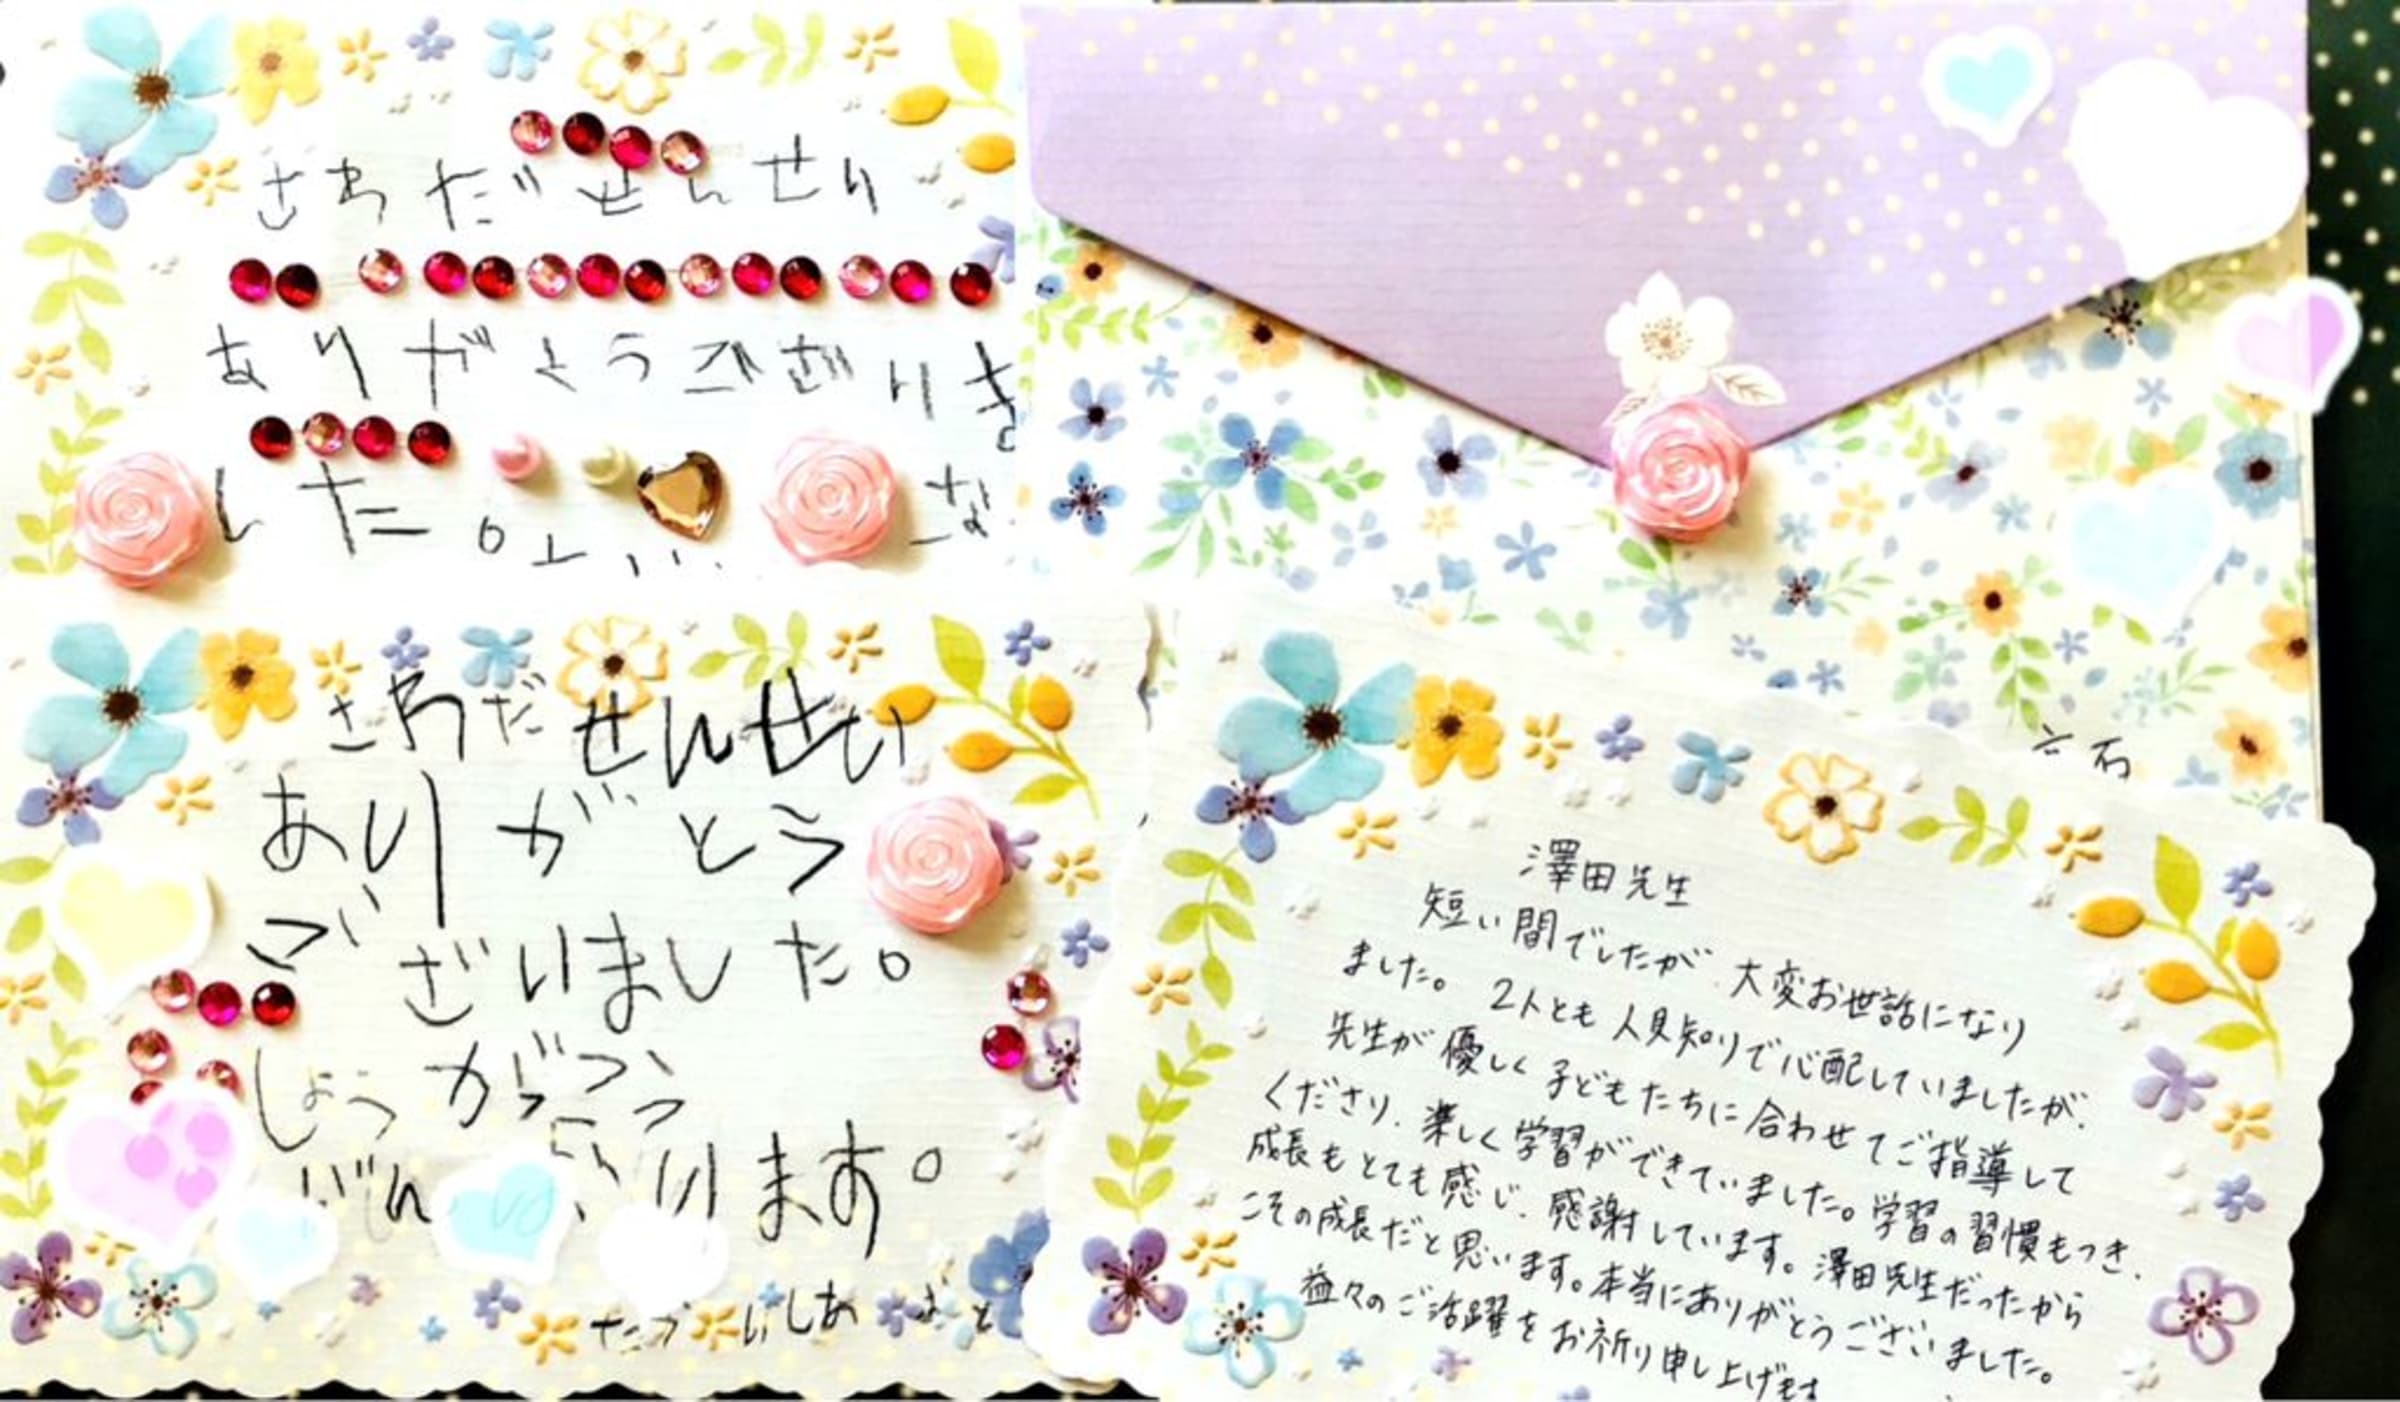 さわだせんせい
ありがとうございま
した。
さわだせんせい
ありがとう
ございました。
しょうがっこう
ります。
澤田先生
短い間でしたが、大変お世話になり
ました。2人とも人見知りで心配していましたが、
先生が優しく子どもたちに合わせてご指導して
くださり、楽しく学習ができていました。学習の習慣もつき、
成長もとても感じ、感謝しています。澤田先生だったから
こその成長だと思います。本当にありがとうございました。
益々のご活躍をお祈り申し上げます